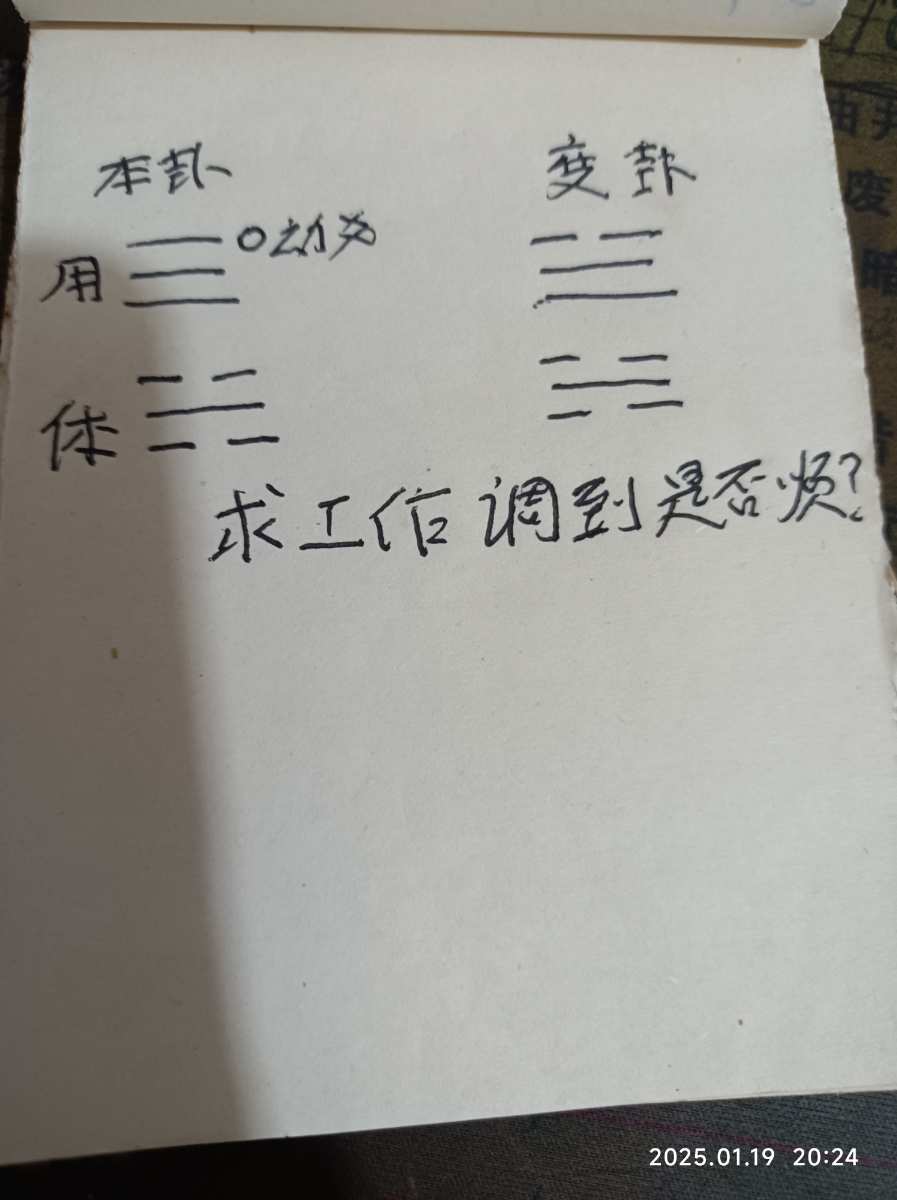 本卦 变卦
O动爻
用
体
求工作调到是否顺?
由
废
暗
2025.01.19 20:24